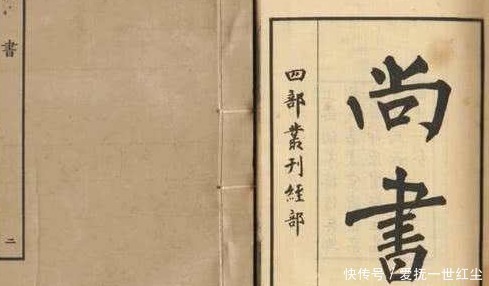 尚書
四部叢刊經部
書
二
快传号/爱抚一世红尘